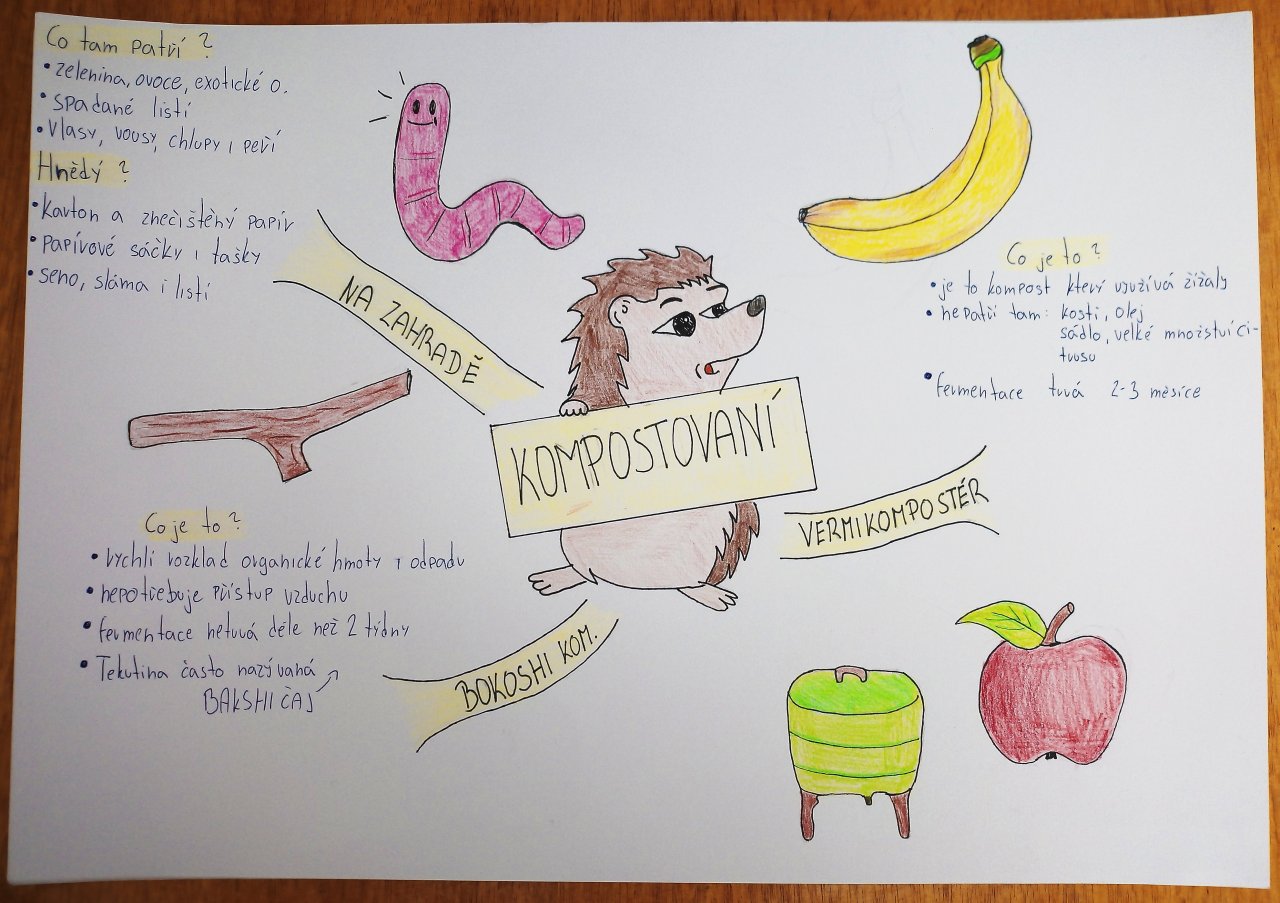 Co tam patří ?
• zelenina, ovoce, exotické o.
• spadané listí
• vlasy, vousy, chlupy i peří
Hnědý ?
• karton a znečištěný papír
• papírové sáčky i tašky
• seno, sláma i listí
NA ZAHRADĚ
KOMPOSTOVANÍ
Co je to ?
• je to kompost který využívá žížaly
• nepatří tam: kosti, olej
sádlo, velké množství ci-
trusu
• fermentace trvá 2-3 měsíce
VERMIKOMPOSTÉR
Co je to ?
• rychlí rozklad organické hmoty i odpadu
• nepotřebuje přístup vzduchu
• fermentace netrvá déle než 2 týdny
• Tekutina často nazývaná
BAKSHI ČAJ
BOKOSHI KOM.